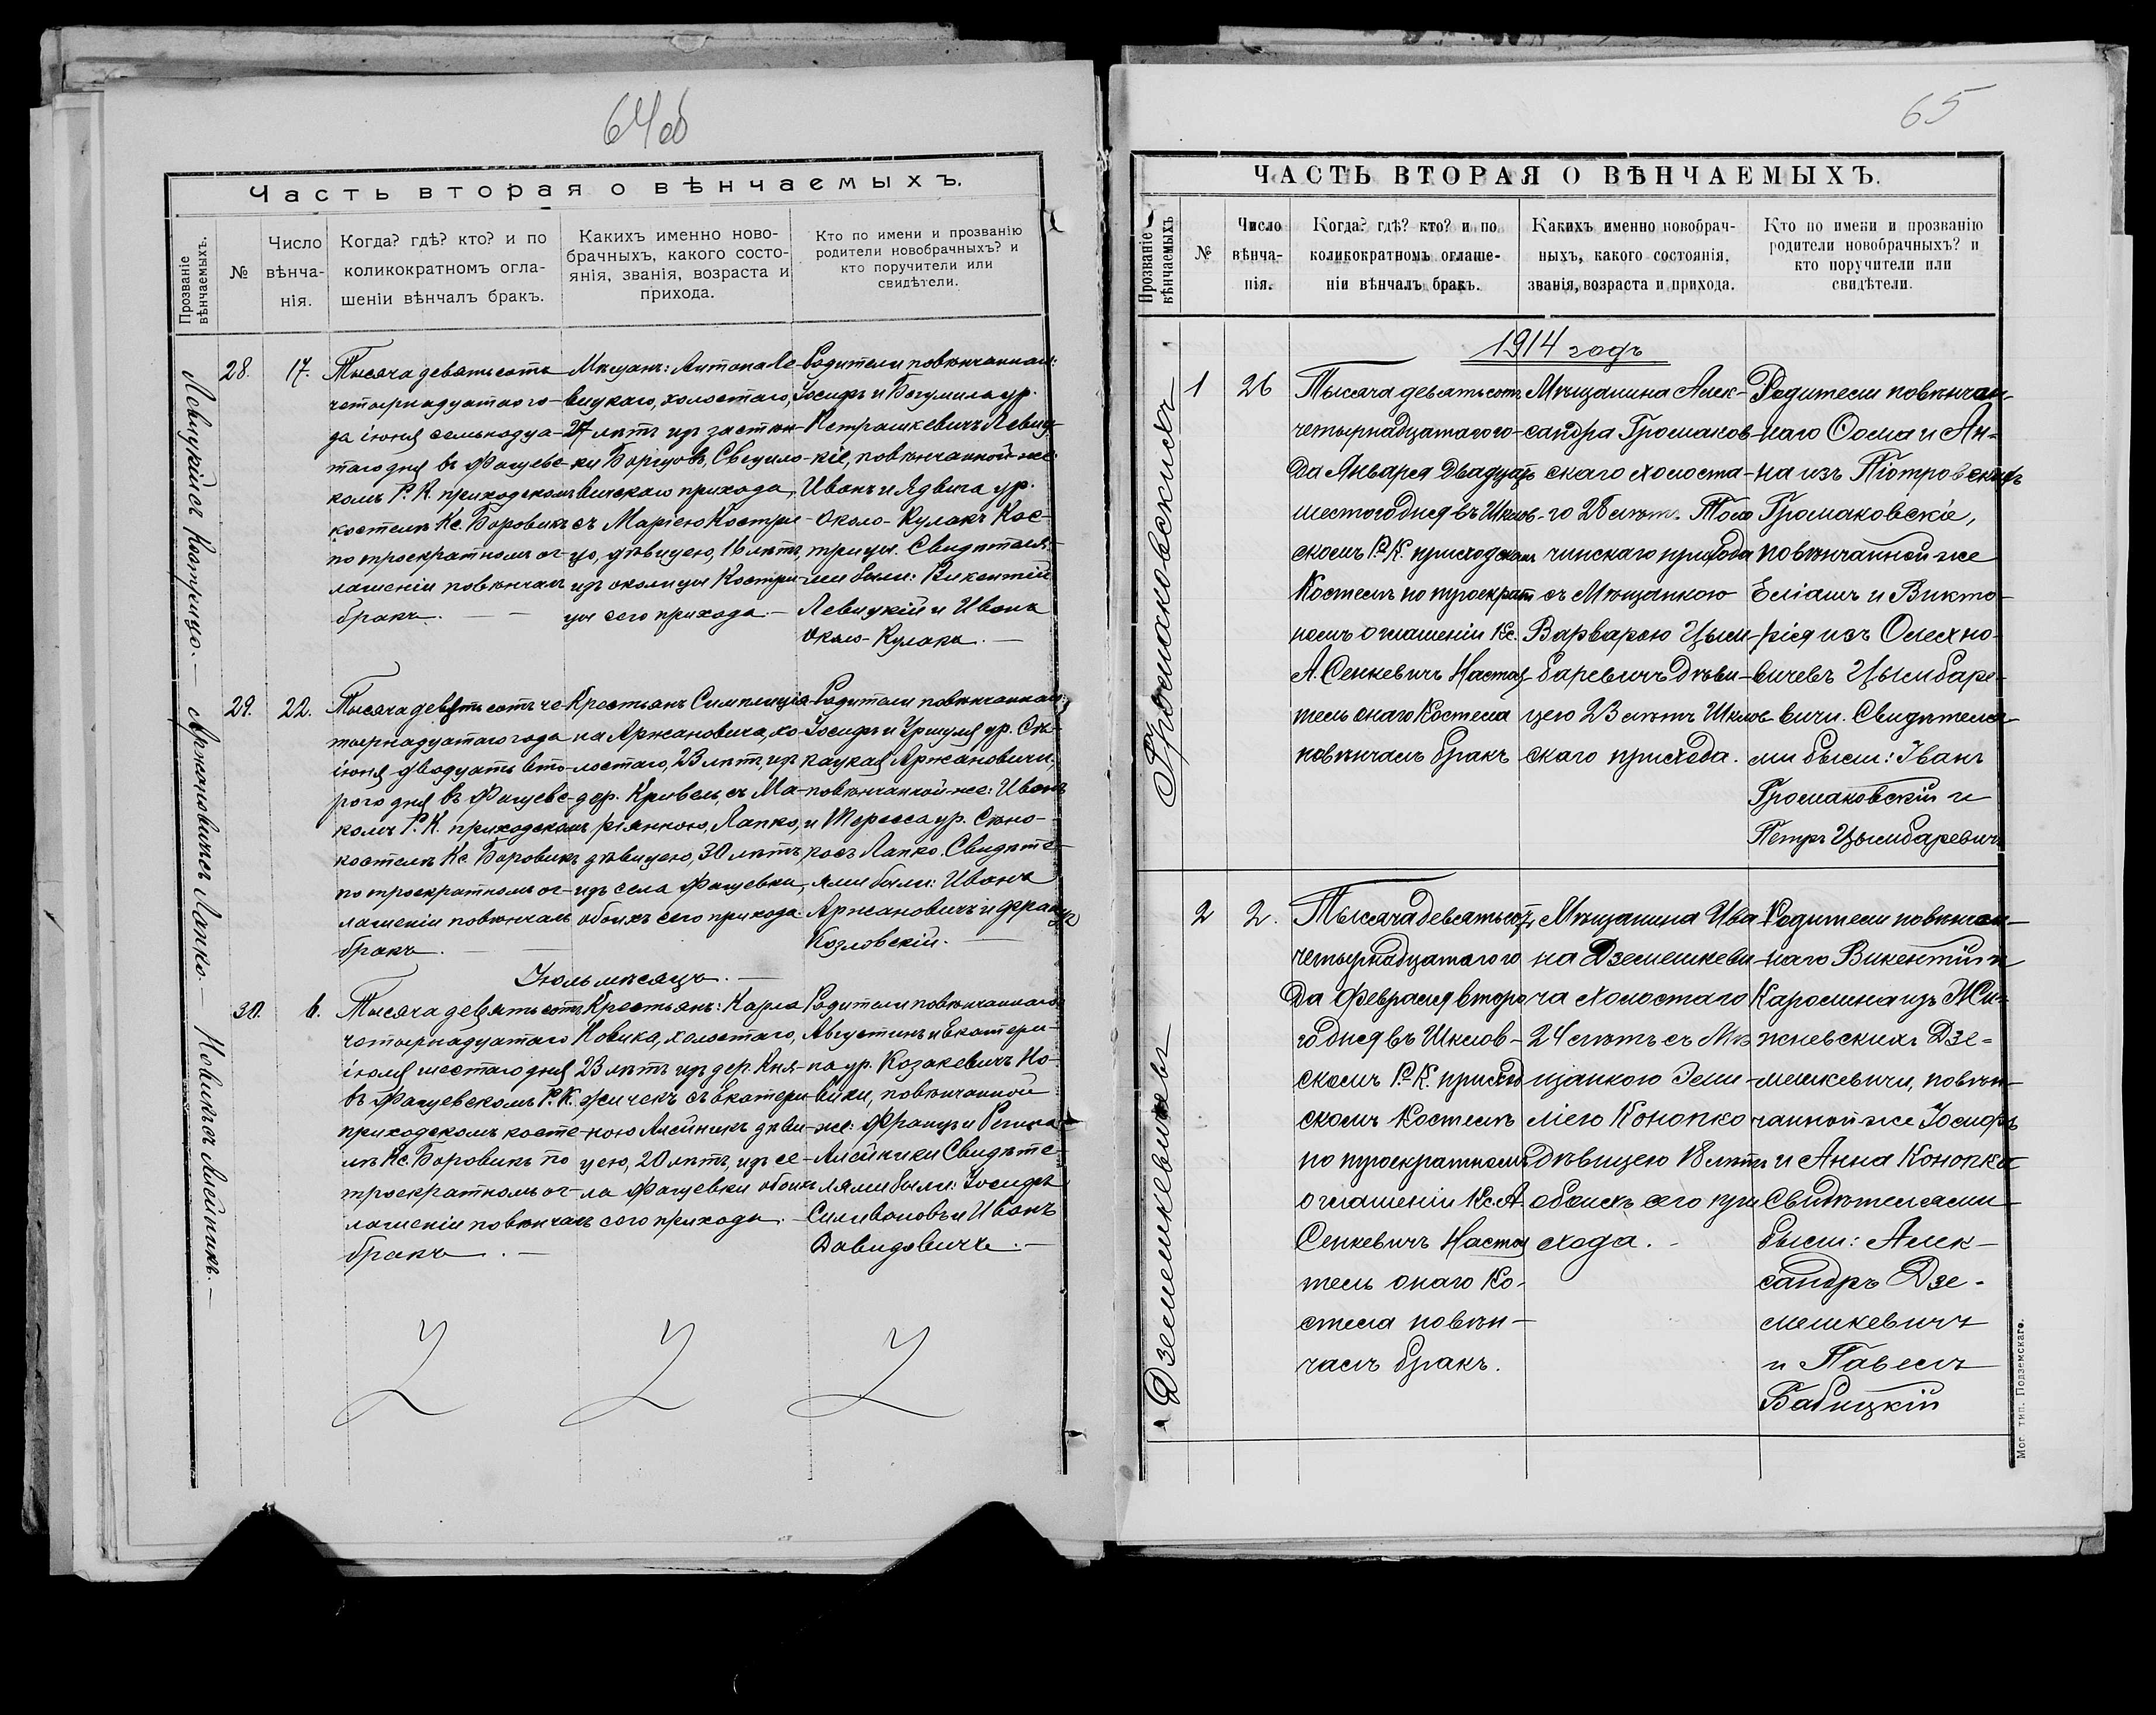 64об
Часть вторая о вѣнчаемыхъ.
Прозваніе
вѣнчаемыхъ.
№
Число
вѣнча-
нія.
Когда? гдѣ? кто? и по
коликократномъ огла-
шеніи вѣнчалъ бракъ.
Какихъ именно ново-
брачныхъ, какого состо-
янія, званія, возраста и
прихода.
Кто по имени и прозванію
родители новобрачныхъ? и
кто поручители или
свидѣтели.
Левицкій съ Кострицо.—
28.
17.
Тысяча девятьсотъ
четырнадцатаго го-
да іюня семьнадца-
таго дня въ Фащевс-
комъ Р. К. приходскомъ
костелѣ Кс. Боровикъ
по троекратномъ ог-
лашеніи повѣнчалъ
бракъ. —
Мѣщанъ: Антона Ле-
вицкаго, холостаго,
27 лѣтъ изъ застѣн-
ки Борщовъ, Свецило-
вичскаго прихода,
съ Маріею Костри-
цо, дѣвицею, 16 лѣтъ,
изъ околицы Костри-
цы сего прихода.—
Родители повѣнчаннаго:
Іосифъ и Богумила ур.
Петрашкевичъ Левиц-
кіе, повѣнчанной-же:
Иванъ и Ядвига ур.
Около-Кулакъ Кос-
трицы. Свидѣтеля-
ми были: Викентій
Левицкій и Иванъ
Около-Кулакъ. —
Аржановичъ съ Лапко.—
29.
22.
Тысяча девятьсотъ че-
тырнадцатаго года
іюня двадцать вто-
рого дня въ Фащевс-
комъ Р. К. приходскомъ
костелѣ Кс. Боровикъ
по троекратномъ ог-
лашеніи повѣнчалъ
бракъ. —
Крестьянъ Симплиція-
на Аржановича, хо-
лостаго, 23 лѣтъ, изъ
дер. Кривель, съ Ма-
ріянною Лапко,
дѣвицею, 30 лѣтъ,
изъ села Фащевки,
обоихъ сего прихода.
Родители повѣнчаннаго:
Іосифъ и Уршуля ур. Ск-
рауцкая Аржановичи,
повѣнчанной-же: Иванъ
и Тересса ур. Сѣно-
косъ Лапко. Свидѣте-
лями были: Иванъ
Аржановичъ и Францъ
Козловскій. —
Іюль мѣсяцъ. —
Новикъ съ Алейникъ.—
30.
6.
Тысяча девятьсотъ
четырнадцатаго
іюля шестаго дня
въ Фащевскомъ Р. К.
приходскомъ косте-
лѣ Кс. Боровикъ по
троекратномъ ог-
лашеніи повѣнчалъ
бракъ. —
Крестьянъ: Карла
Новика, холостаго,
23 лѣтъ изъ дер. Кня-
жичекъ съ Екатери-
ною Алейникъ дѣви-
цею, 20 лѣтъ, изъ се-
ла Фащевки обоихъ
сего прихода. —
Родители повѣнчаннаго:
Августинъ и Екатери-
на ур. Козакевичъ Но-
вики, повѣнчанной
же: Францъ и Регина
Алейники Свидѣте-
лями были: Іосифъ
Силивоновъ и Иванъ
Давидовичъ. —
65
ЧАСТЬ ВТОРАЯ О ВѢНЧАЕМЫХЪ.
Прозваніе
вѣнчаемыхъ
№
Число
вѣнча-
нія.
Когда? гдѣ? кто? и по
коликократномъ оглаше-
ніи вѣнчалъ бракъ.
Какихъ именно новобрач-
ныхъ, какого состоянія,
званія, возраста и прихода.
Кто по имени и прозванію
родители новобрачныхъ? и
кто поручители или
свидѣтели.
1914 годъ
Громаковскихъ
1
26
Тысяча девятьсотъ
четырнадцатаго го-
да Января Двадцать
шестого дня въ Шклов-
скомъ Р. К. приходском
Костелѣ по троекрат
номъ оглашеніи Кс.
А. Сенкевичъ Настоя-
тель онаго Костела
повѣнчалъ бракъ
Мѣщанина Алек-
сандра Громаков-
скаго холоста-
го 28 лѣтъ. Толо
чинскаго прихода
съ Мѣщанкою
Варварою Цым-
баревичъ дѣви-
цею 23 лѣтъ Шклов
скаго прихода.
Родители повѣнчан-
наго Фома и Ан-
на изъ Піотровскихъ
Громаковскіе,
повѣнчанной же
Еліашъ и Викто-
рія изъ Олехно-
вичевъ Цымбаре-
вичи. Свидѣтеля-
ми были: Іванъ
Громаковскій и
Петръ Цымбаревичъ
Дземешкевичъ
2
2.
Тысяча девятьсотъ
четырнадцатаго го
да Февраля второ
го дня въ Шклов-
скомъ Р. К. приход
скомъ Костелѣ
по троекратномъ
оглашеніи Кс. А.
Сенкевичъ Настоя
тель онаго Ко-
стела повѣн-
чалъ бракъ.
Мѣщанина Ива
на Дземешкеви-
ча холостаго
24 лѣтъ съ Мѣ
щанкою Эми-
ліею Конопко
дѣвицею 18 лѣтъ
обоихъ сего при
хода. -
Родители повѣнчан-
наго Викентій и
Каролина изъ Жи-
жневскихъ Дзе-
мешкевичи, повѣн-
чанной же Іосифъ
и Анна Конопка
Свидѣтелями
были: Алек-
сандръ Дзе-
мешкевичъ
и Павелъ
Бабицкій
Мог. тип. Подземскаго.